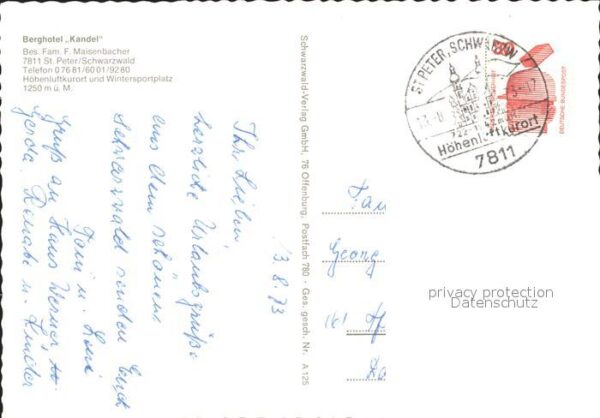 Berghotel „Kandel"
Bes. Fam. F. Maisenbacher
7811 St. Peter/Schwarzwald
Telefon 0 76 81/60 01/92 80
Höhenluftkurort und Wintersportplatz
1250 m ü. M.
13.8.73
Ihr Lieben
herzliche Urlaubsgrüße
aus dem schönen
Schwarzwald senden Euch
Toni u.
Gruß an Hans Werner
Gerda, Renate u.
Schwarzwald-Verlag GmbH, 76 Offenburg, Postfach 780 - Ges. gesch. Nr. A 125
ST. PETER, SCHWARZW
Höhenluftkurort
7811
DEUTSCHE BUNDESPOST
Fam
Georg
privacy protection
Datenschutz